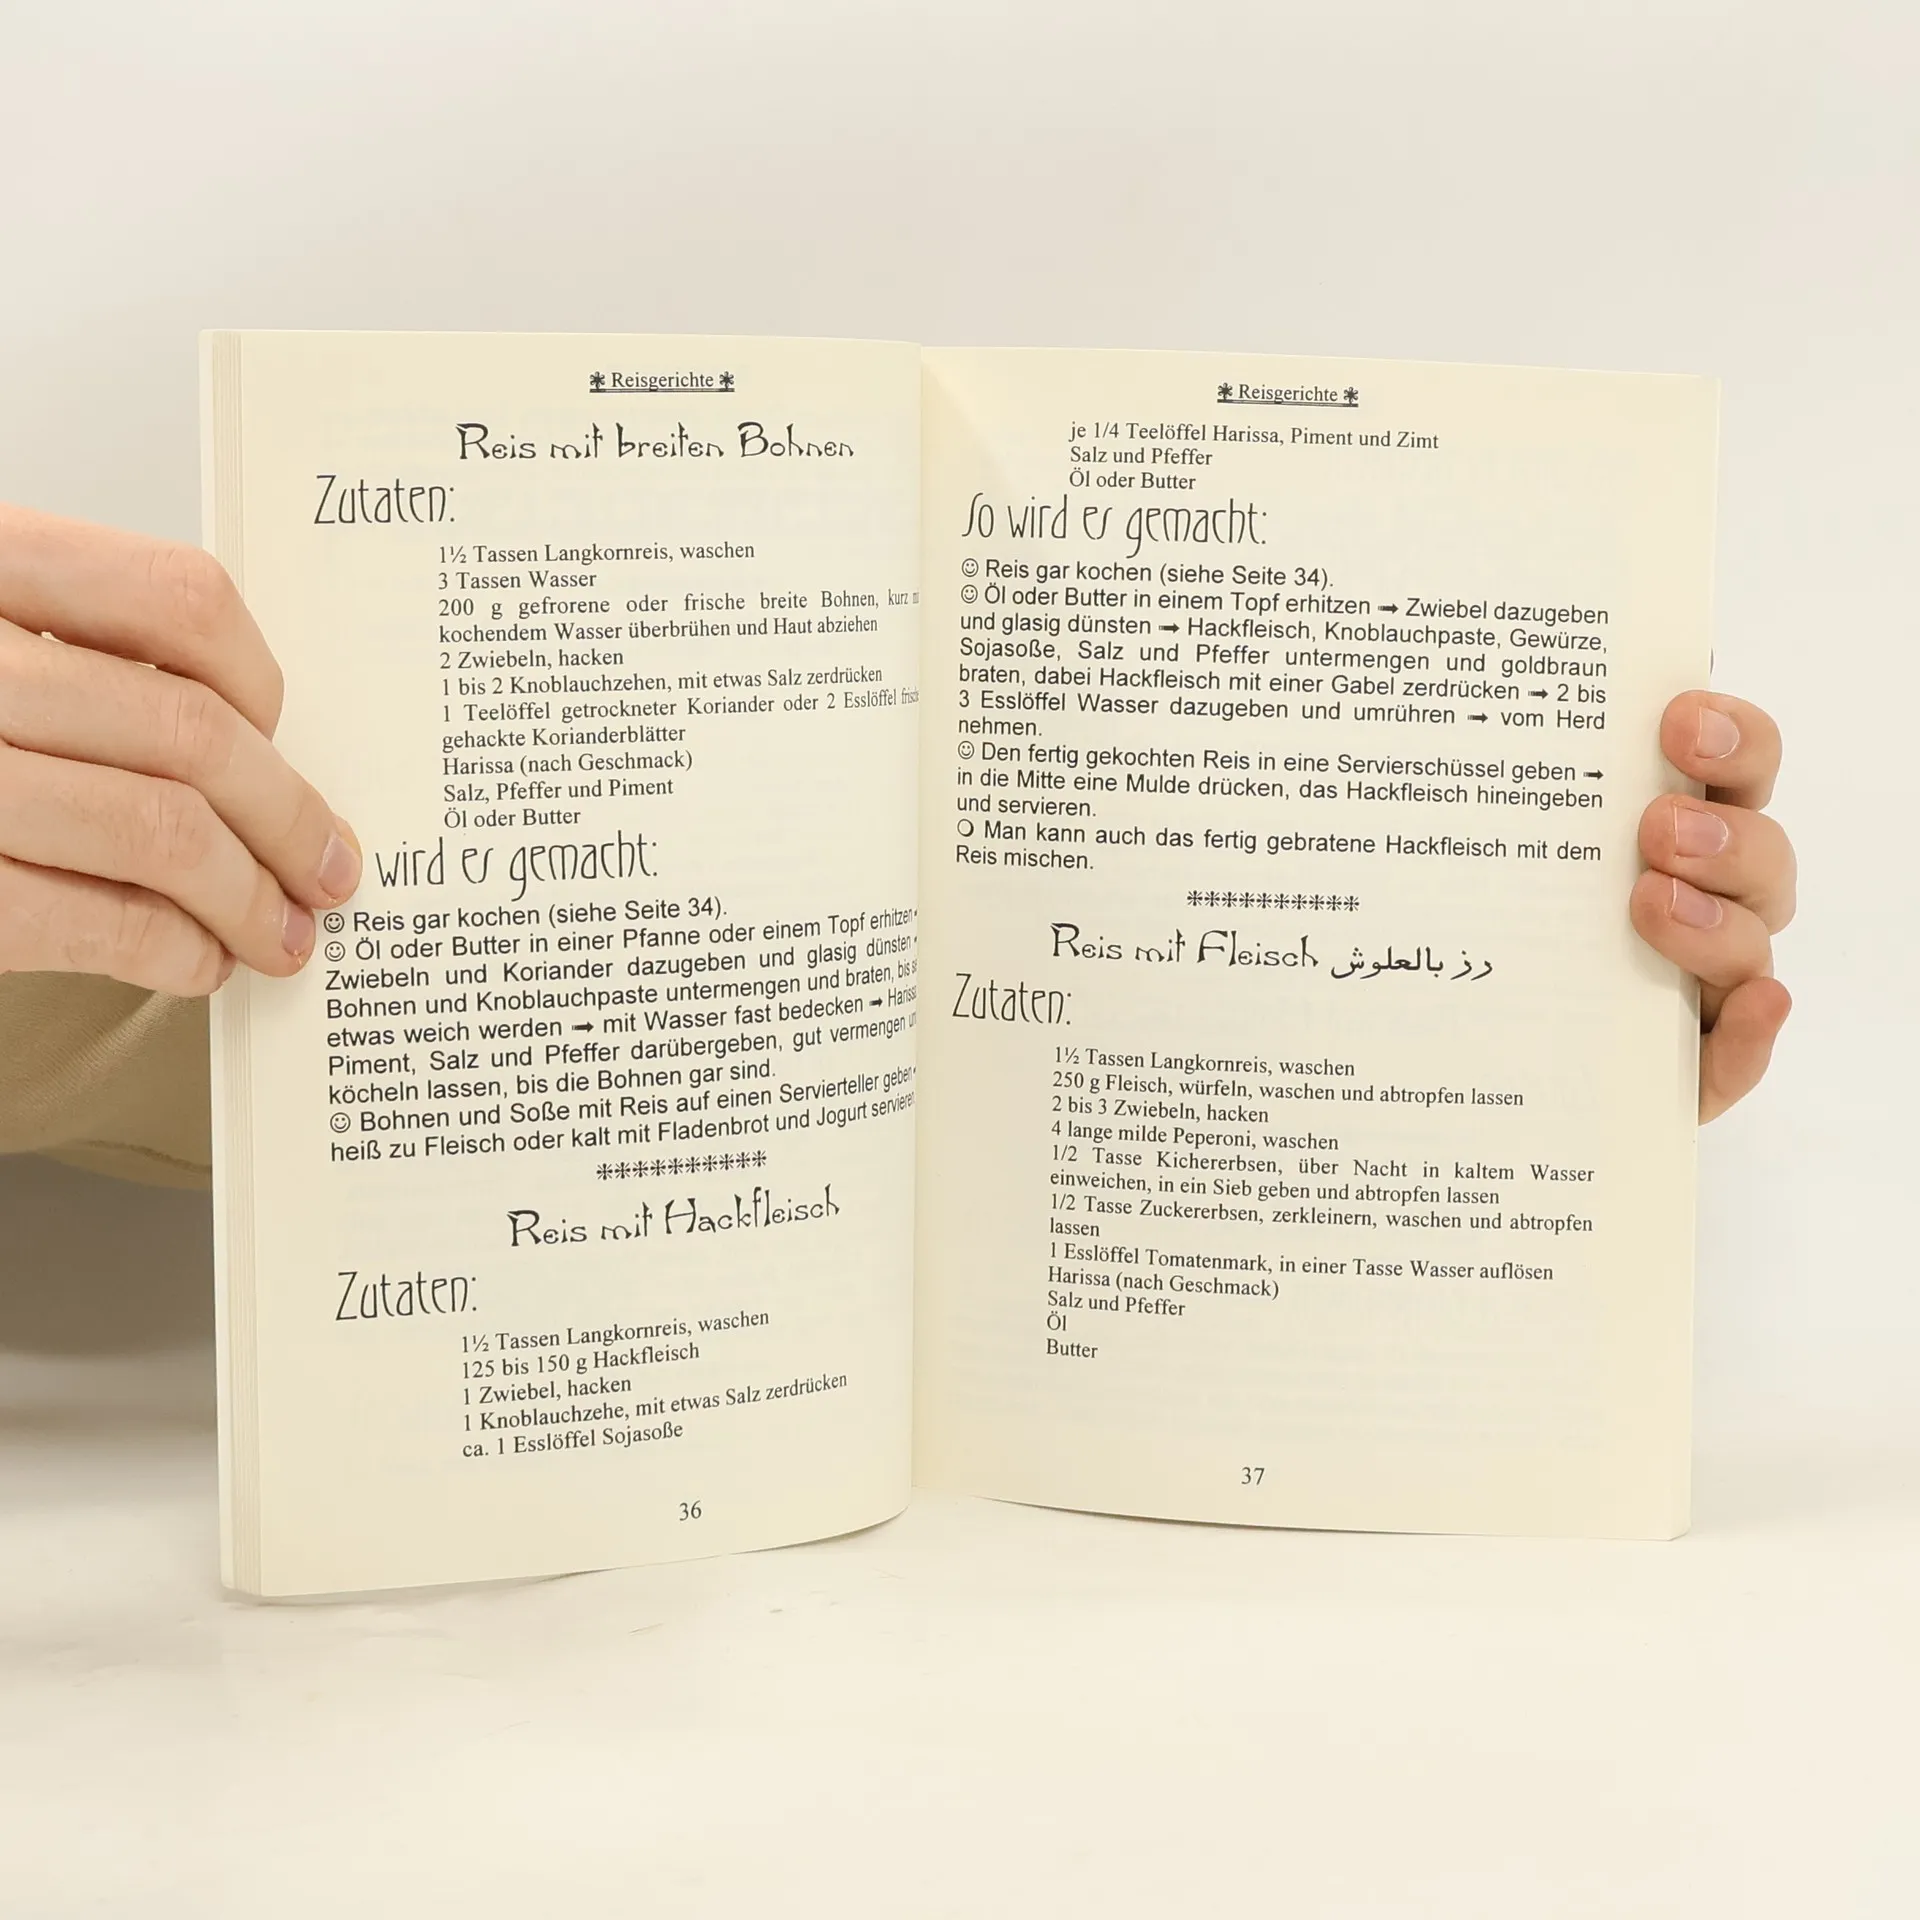 ❃ Reisgerichte ❃
Reis mit breiten Bohnen
Zutaten:
1½ Tassen Langkornreis, waschen
3 Tassen Wasser
200 g gefrorene oder frische breite Bohnen, kurz
kochendem Wasser überbrühen und Haut abziehen
2 Zwiebeln, hacken
1 bis 2 Knoblauchzehen, mit etwas Salz zerdrücken
1 Teelöffel getrockneter Koriander oder 2 Esslöffel
gehackte Korianderblätter
Harissa (nach Geschmack)
Salz, Pfeffer und Piment
Öl oder Butter
wird es gemacht:
☺ Reis gar kochen (siehe Seite 34).
☺ Öl oder Butter in einer Pfanne oder einem Topf erhitzen
Zwiebeln und Koriander dazugeben und glasig dünsten
Bohnen und Knoblauchpaste untermengen und braten, bis
etwas weich werden ➟ mit Wasser fast bedecken ➟ Harissa
Piment, Salz und Pfeffer darübergeben, gut vermengen
köcheln lassen, bis die Bohnen gar sind.
☺ Bohnen und Soße mit Reis auf einen Servierteller geben
heiß zu Fleisch oder kalt mit Fladenbrot und Jogurt servieren
❋❋❋❋❋❋❋❋❋❋
Reis mit Hackfleisch
Zutaten:
1½ Tassen Langkornreis, waschen
125 bis 150 g Hackfleisch
1 Zwiebel, hacken
1 Knoblauchzehe, mit etwas Salz zerdrücken
ca. 1 Esslöffel Sojasoße
36
❃ Reisgerichte ❃
je 1/4 Teelöffel Harissa, Piment und Zimt
Salz und Pfeffer
Öl oder Butter
So wird es gemacht:
☺ Reis gar kochen (siehe Seite 34).
☺ Öl oder Butter in einem Topf erhitzen ➟ Zwiebel dazugeben
und glasig dünsten ➟ Hackfleisch, Knoblauchpaste, Gewürze,
Sojasoße, Salz und Pfeffer untermengen und goldbraun
braten, dabei Hackfleisch mit einer Gabel zerdrücken ➟ 2 bis
3 Esslöffel Wasser dazugeben und umrühren ➟ vom Herd
nehmen.
☺ Den fertig gekochten Reis in eine Servierschüssel geben ➟
in die Mitte eine Mulde drücken, das Hackfleisch hineingeben
und servieren.
❍ Man kann auch das fertig gebratene Hackfleisch mit dem
Reis mischen.
❋❋❋❋❋❋❋❋❋❋
Reis mit Fleisch رز بالعلوش
Zutaten:
1½ Tassen Langkornreis, waschen
250 g Fleisch, würfeln, waschen und abtropfen lassen
2 bis 3 Zwiebeln, hacken
4 lange milde Peperoni, waschen
1/2 Tasse Kichererbsen, über Nacht in kaltem Wasser
einweichen, in ein Sieb geben und abtropfen lassen
1/2 Tasse Zuckererbsen, zerkleinern, waschen und abtropfen
lassen
1 Esslöffel Tomatenmark, in einer Tasse Wasser auflösen
Harissa (nach Geschmack)
Salz und Pfeffer
Öl
Butter
37